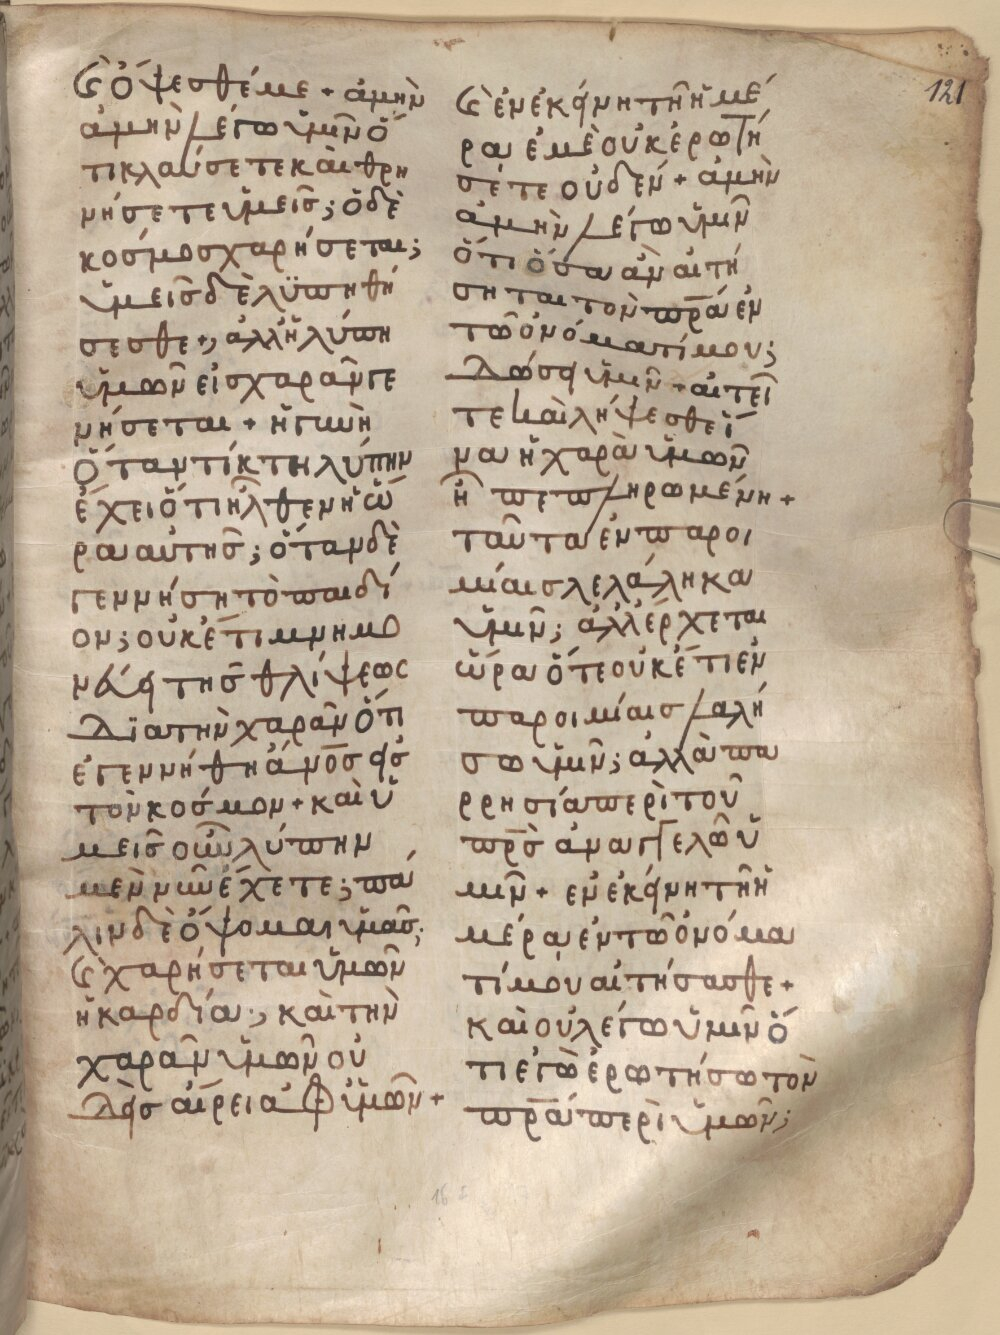 121
ϗ ὄψεσθέ με + ἀμὴν
ἀμὴν λέγω ὑμῖν ὅ
τι κλαύσετε καὶ θρη
νήσετε ὑμεῖς; ὁ δὲ
κόσμος χαρήσεται;
ὑμεῖς δὲ λϋπηθή
σεσθε +; ἀλλ ἡ λύπη
ὑμῶν εἰς χαρὰν γε
νήσεται + ἡ γυνὴ
ὅταν τίκτη λύπην
ἔχει ὅτι ἦλθεν ἡ ὥ
ρα αὐτης; ὅταν δὲ
γεννήση τὸ παιδί
ον; οὐκέτι μνημο
νεύει τῆς θλίψεως
διατὴν χαρὰν ὅτι
ἐγεννήθη ἄνο̅ς εἰς
τὸν κόσμον + καὶ ὑ
μεῖς οὖν λύπην
μὲν νῦν ἔχετε; πά
λιν δὲ ὄψομαι ὑμᾶς;
ϗ χαρήσεται ὑμῶν
ἡ καρδία; καὶ τὴν
χαρὰν ὑμῶν οὐ
δεὶς αἴρει ἀφ ὑμῶν +
ϗ ἐν ἐκείνη τῆ ἡμέ
ρα ἐμὲ οὐκ ἐρωτή
σετε οὐδέν + ἀμὴν
ἀμὴν λέγω ὑμῖν
ὅτι ὅσα ἀν αἰτή
σηται τὸν πρ̅α ἐν
τῶ ὀνόματί μου;
δώσει ὑμῖν + αἰτεῖ
τε καὶ λήψεσθε ἵ
να ἡ χαρὰ ὑμῶν
ἦ πεπληρωμένη +
ταῦτα ἐν παροι
μίαις λελάληκα
ὑμῖν; ἀλλ ἔρχεται
ὥρα ὅτε οὐκέτι ἐν
παροιμίαις λαλή
σω ὑμῖν; ἀλλὰ πα
ρρησία περὶ τοῦ
πρ̅ς ἀναγγελῶ ὑ
μῖν + ἐν ἐκείνη τῆ ἡ
μέρα ἐν τῶ ὀνόμα
τί μου αἰτήσασθε +
καὶ οὐ λέγω ὑμῖν ὅ
τι ἐγὼ ἐρωτήσω τὸν
πρ̅α περὶ ὑμῶν;